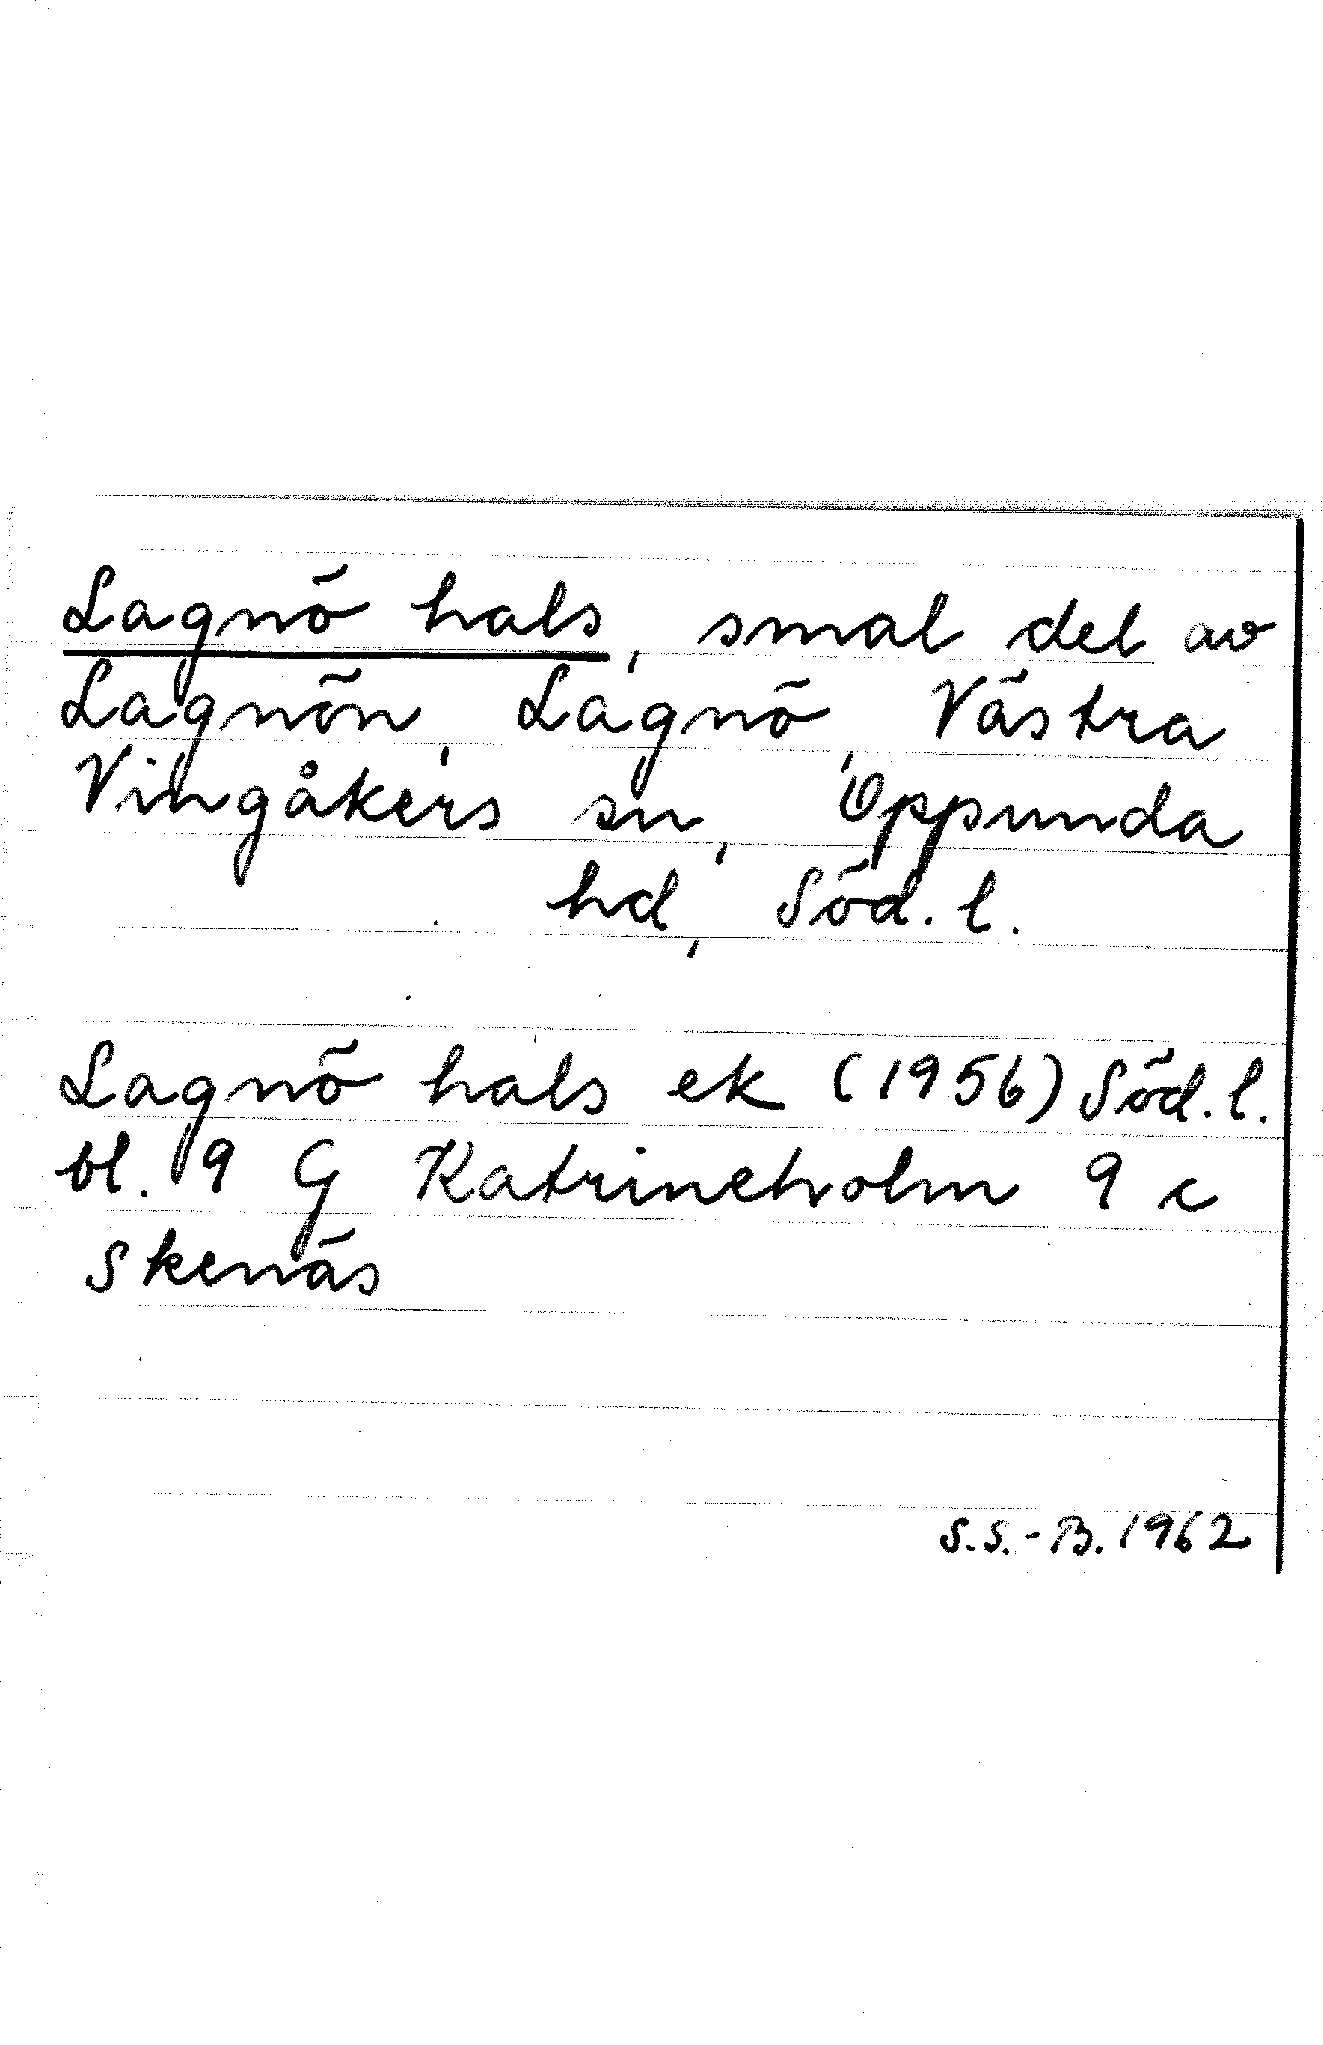 Lagnö hals, smal del av
Lagnön, Lagnö, Västra
Vingåkers sn, Oppunda
hd, Söd. l.
Lagnö hals ek (1956) Söd. l.
bl. 9 G Katrineholm 9 c
Skenäs
S.S.-B. 1962